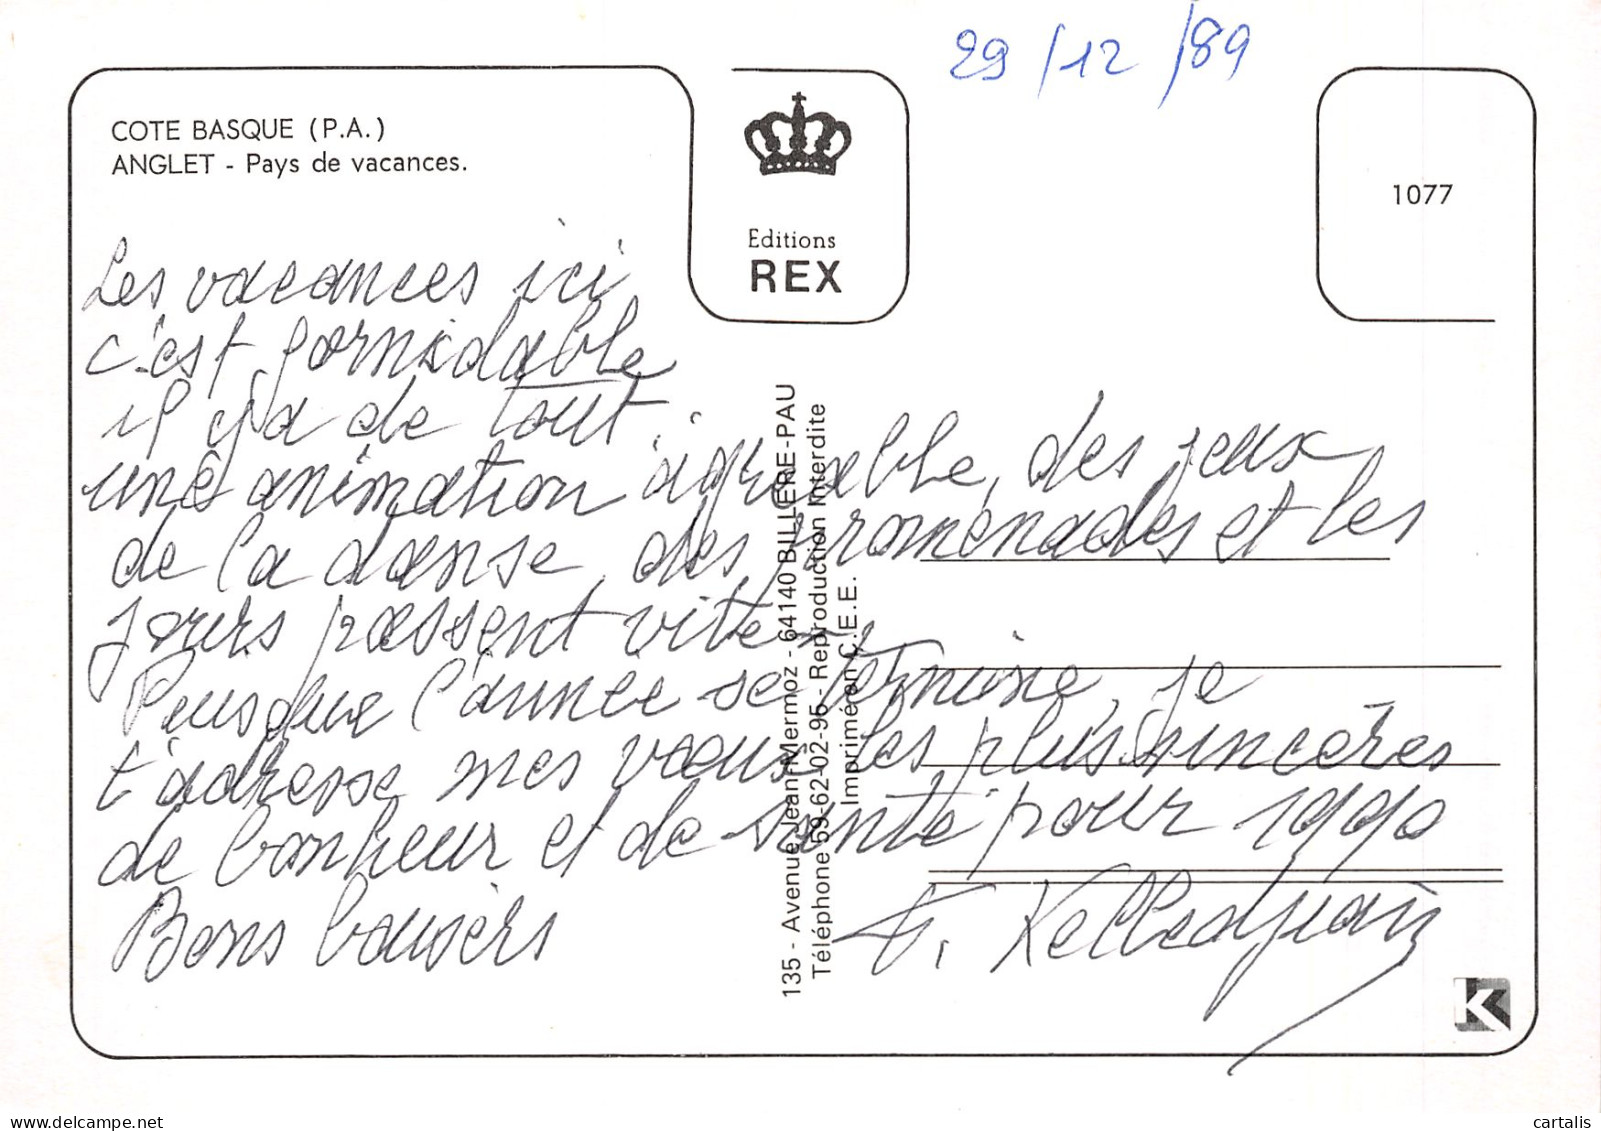 29/12/89
COTE BASQUE (P.A.)
ANGLET - Pays de vacances.
Editions
REX
1077
Les vacances ici
c'est formidable
il y a de tout
une animation agréable, des jeux
de la danse, des promenades et les
jours passent vite
Puisque l'année se termine, je
t'adresse mes vœux les plus sincères
de bonheur et de santé pour 1990
Bons baisers
135 - Avenue Jean Mermoz - 64140 BILLÈRE-PAU
Téléphone 59-62-02-95 - Reproduction Interdite
Imprimé en C.E.E.
K
cartalis